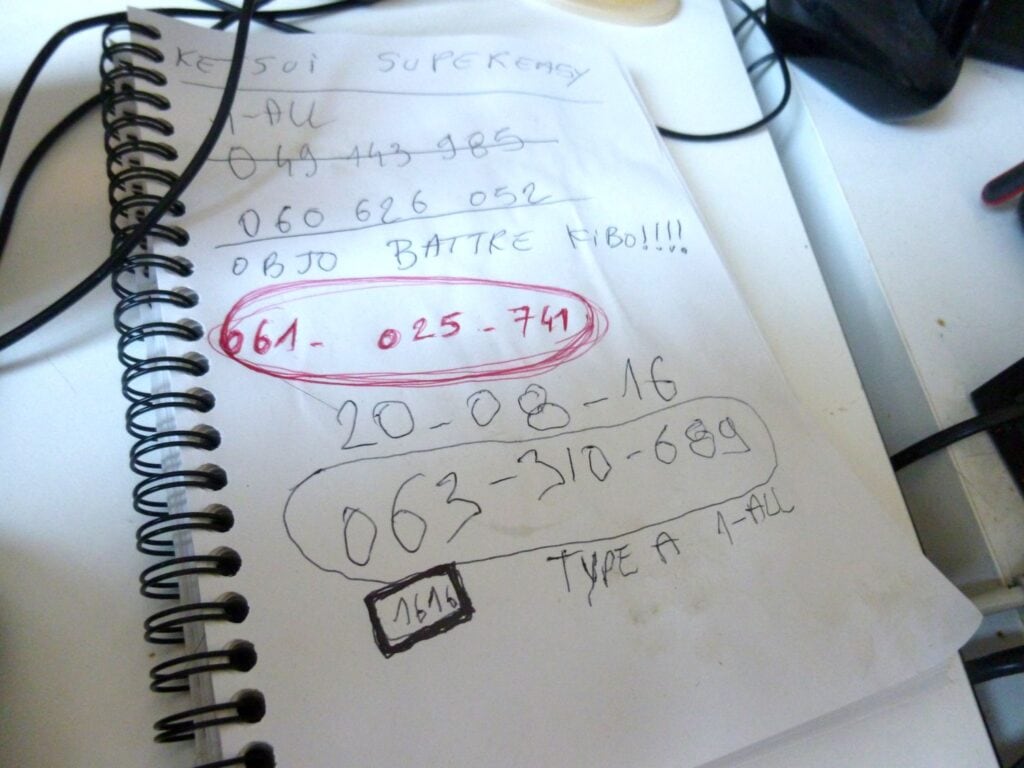 KETSUI SUPEREASY
1-ALL
049 143 985
060 626 052
OBJO BATTRE KIBO!!!!
061- 025-741
20-08-16
063-310-689
TYPE A 1-ALL
1616